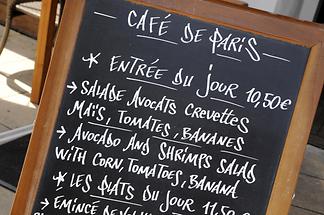 — CAFÉ DE PARIS —
* ENTRÉE DU JOUR 10,50€
→ SALADE AVOCATS CREVETTES
MAÏS, TOMATES, BANANES
→ AVOCADO AND SHRIMPS SALAD
WITH CORN, TOMATOES, BANANA
* LES PLATS DU JOUR 11,50€
→ EMINCE DE